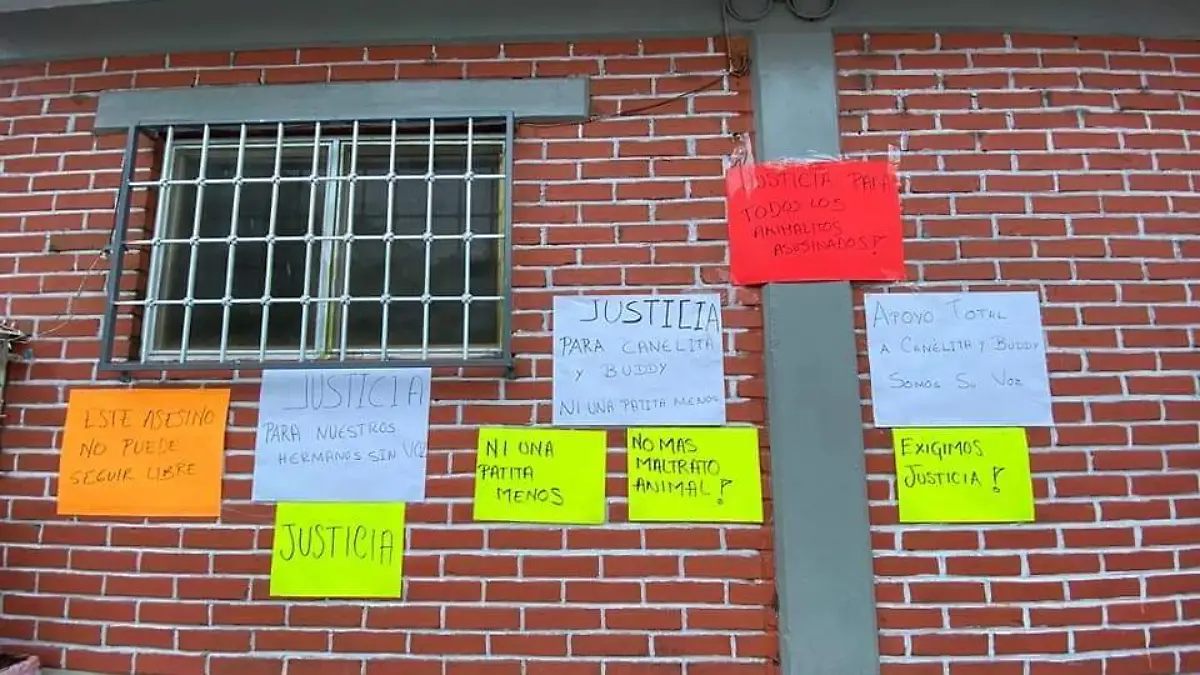 JUSTICIA PARA
TODOS LOS
ANIMALITOS
ASESINADOS!
JUSTICIA
PARA CANELITA
Y BUDDY
NI UNA PATITA MENOS
APOYO TOTAL
A CANELITA Y BUDDY
SOMOS SU VOZ
ESTE ASESINO
NO PUEDE
SEGUIR LIBRE
JUSTICIA
PARA NUESTROS
HERMANOS SIN VOZ
NI UNA
PATITA
MENOS
NO MAS
MALTRATO
ANIMAL!
EXIGIMOS
JUSTICIA!
JUSTICIA